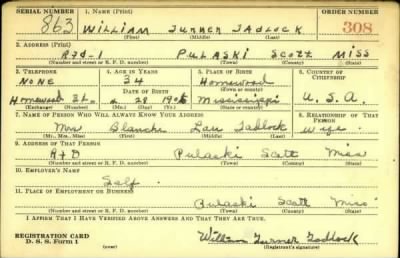 SERIAL NUMBER 1. NAME (Print) ORDER NUMBER
863 WILLIAM TURNER TADLOCK 308
(First) (Middle) (Last)
2. ADDRESS (Print)
RJD-1 PULASKI SCOTT MISS
(Number and street or R. F. D. number) (Town) (County) (State)
3. TELEPHONE 4. AGE IN YEARS 5. PLACE OF BIRTH 6. COUNTRY OF CITIZENSHIP
NONE 34 Homewood
DATE OF BIRTH (Town or county)
Homewood 28 1906 Mississippi U. S. A.
(Exchange) (Number) (Mo.) (Day) (Yr.) (State or country)
7. NAME OF PERSON WHO WILL ALWAYS KNOW YOUR ADDRESS 8. RELATIONSHIP OF THAT PERSON
Mrs Blanche Lou Tadlock Wife
(Mr., Mrs., Miss) (First) (Middle) (Last)
9. ADDRESS OF THAT PERSON
Pulaski Scott Miss
(Number and street or R. F. D. number) (Town) (County) (State)
10. EMPLOYER'S NAME
Self
11. PLACE OF EMPLOYMENT OR BUSINESS
Pulaski Scott Miss
(Number and street or R. F. D. number) (Town) (County) (State)
I AFFIRM THAT I HAVE VERIFIED ABOVE ANSWERS AND THAT THEY ARE TRUE.
REGISTRATION CARD
D. S. S. Form 1 William Turner Tadlock
(Registrant's signature)